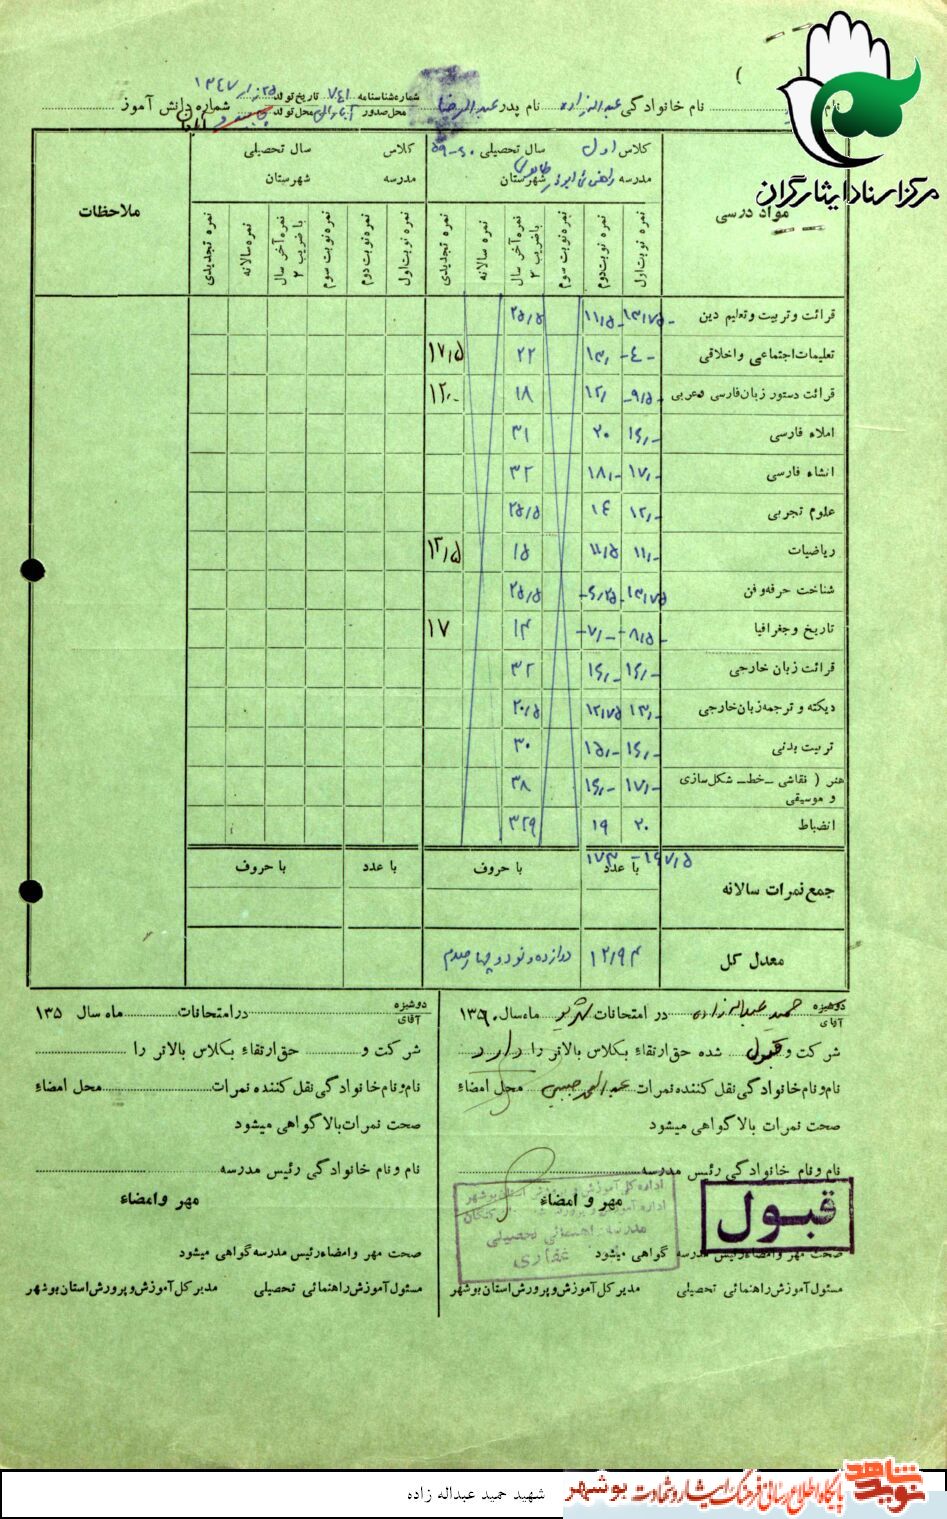 مرکز اسناد ایثارگران
نام خانوادگی عبداله زاده نام پدر عبدالرضا شماره شناسنامه ۷۴۱ تاریخ تولد ۱۳۴۷ شماره دانش آموز
محل صدور محل تولد
مواد درسی
کلاس اول سال تحصیلی ۶۰-۵۹
مدرسه راهنمائی ابوذر شهرستان
کلاس سال تحصیلی
مدرسه شهرستان
ملاحظات
نمره نوبت اول
نمره نوبت دوم
نمره نوبت سوم
نمره آخر سال با ضریب ۲
نمره سالانه
نمره تجدیدی
نمره نوبت اول
نمره نوبت دوم
نمره نوبت سوم
نمره آخر سال با ضریب ۲
نمره سالانه
نمره تجدیدی
قرائت و تربیت و تعلیم دین ۱۳/۷۵ ۱۱/۵ ۲۵/۵
تعلیمات اجتماعی و اخلاقی ۴- ۱۳/ ۲۲ ۱۷/۵
قرائت دستور زبان فارسی و عربی ۹/۵ ۱۲/ ۱۸ ۱۲/-
املاء فارسی ۱۶/- ۲۰ ۳۱
انشاء فارسی ۱۷/- ۱۸/- ۳۲
علوم تجربی ۱۲/- ۱۴ ۲۵/۵
ریاضیات ۱۱/- ۱۱/۵ ۱۵ ۱۲/۵
شناخت حرفه و فن ۱۳/۷۵ ۶/۲۵ ۲۵/۵
تاریخ و جغرافیا ۸/۵ ۷/- ۱۴ ۱۷
قرائت زبان خارجی ۱۶/- ۱۶/- ۳۲
دیکته و ترجمه زبان خارجی ۱۳/- ۱۲/۷۵ ۲۰/۵
تربیت بدنی ۱۶/- ۱۵/- ۳۰
هنر ( نقاشی - خط - شکل سازی و موسیقی ۱۷/- ۱۶/- ۳۸
انضباط ۲۰ ۱۹ ۳۲۹
۱۹۷/۵ - ۱۷۳
جمع نمرات سالانه با عدد با حروف با عدد با حروف
معدل کل ۱۲/۹۴ دوازده و نود و چهار صدم
دوشیزه آقای حمید عبداله زاده در امتحانات شهریور ماه سال ۱۳۶۰
شرکت و قبول شده حق ارتقاء بکلاس بالاتر را دارد
نام و نام خانوادگی نقل کننده نمرات محل امضاء
صحت نمرات بالا گواهی میشود
نام و نام خانوادگی رئیس مدرسه
مهر و امضاء
قبول
اداره کل آموزش و پرورش استان بوشهر
مدرسه راهنمائی تحصیلی
غفاری
صحت مهر و امضاء رئیس مدرسه گواهی میشود
مسئول آموزش راهنمائی تحصیلی مدیر کل آموزش و پرورش استان بوشهر
دوشیزه آقای در امتحانات ماه سال ۱۳۵
شرکت و حق ارتقاء بکلاس بالاتر را
نام و نام خانوادگی نقل کننده نمرات محل امضاء
صحت نمرات بالا گواهی میشود
نام و نام خانوادگی رئیس مدرسه
مهر و امضاء
صحت مهر و امضاء رئیس مدرسه گواهی میشود
مسئول آموزش راهنمائی تحصیلی مدیر کل آموزش و پرورش استان بوشهر
نوید شاهد
پایگاه اطلاع رسانی فرهنگ ایثار و شهادت بوشهر
شهید حمید عبداله زاده